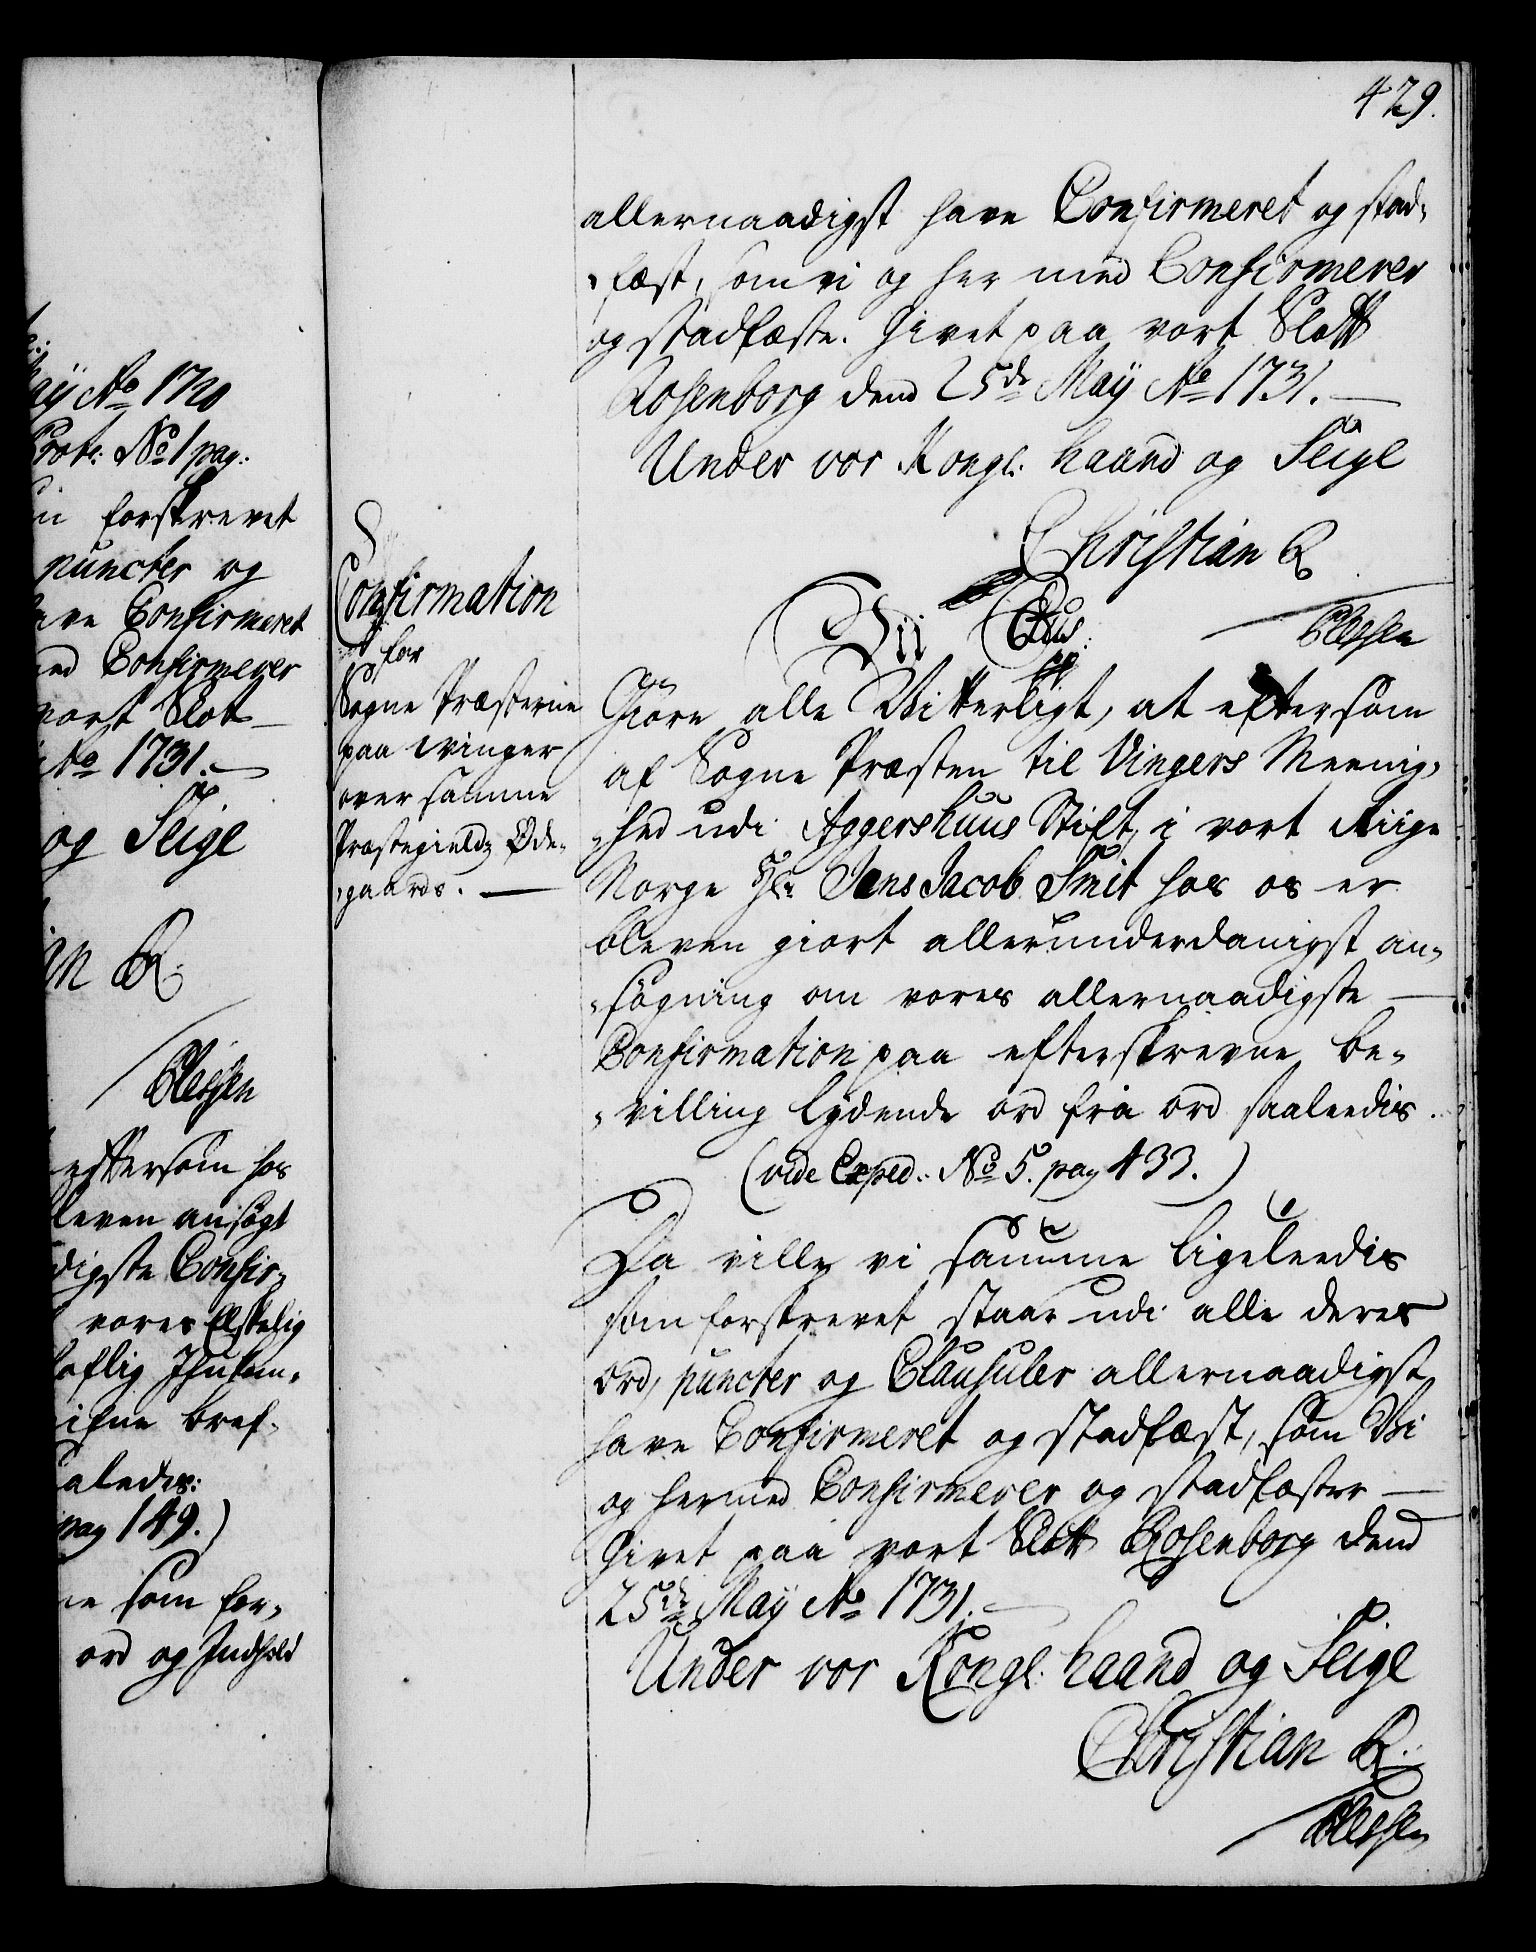 429.
allernaadigst have Confirmeret og stad-
-fæst, som vi og her med Confirmerer
og stadfæste. Givet paa vort Slott
Rosenborg dend 25de Maÿ Ao 1731.
Under vor Kongl: haand og Seigl
Christian R
Clessen
Confirmation
for
Sogne Præsterne
paa Winger
over samme
Præstegields Øde-
-gaarde.
Vii Chr:
Giøre alle Vitterligt, at eftersom
af Sogne Præsten til Vingers Meenig-
-hed udi Aggershuus Stift, i vort Riige
Norge Hr: Jens Jacob Smit hos os er
bleven giort allerunderdanigst an-
-søgning om vores allernaadigste
Confirmation paa efterskrevne be-
-villing lydende ord fra ord saaleedis.
(vide Exped: No 5. pag 433.)
Da ville vi samme ligeleedis
som forskrevet staar udi alle deres
ord, puncter og Clausuler allernaadigst
have Confirmeret og stadfæst, som Vi
og hermed Confirmerer og stadfæster
Givet paa vort Slott Rosenborg dend
25de Maÿ Ao 1731.
Under vor Kongl: haand og Seigl
Christian R.
Clessen
aÿ Ao 1720
Prot: No 1 pag:
forskrevet
puncter og
ave Confirmeret
ed Confirmerer
vort Slot
Ao 1731.
og Seigl
an R.
Clessen
eftersom hos
bleven ansøgt
digste Confir-
vores Elskelig
bref-
aledes:
pag 149.)
ne som for-
ord og Indhold